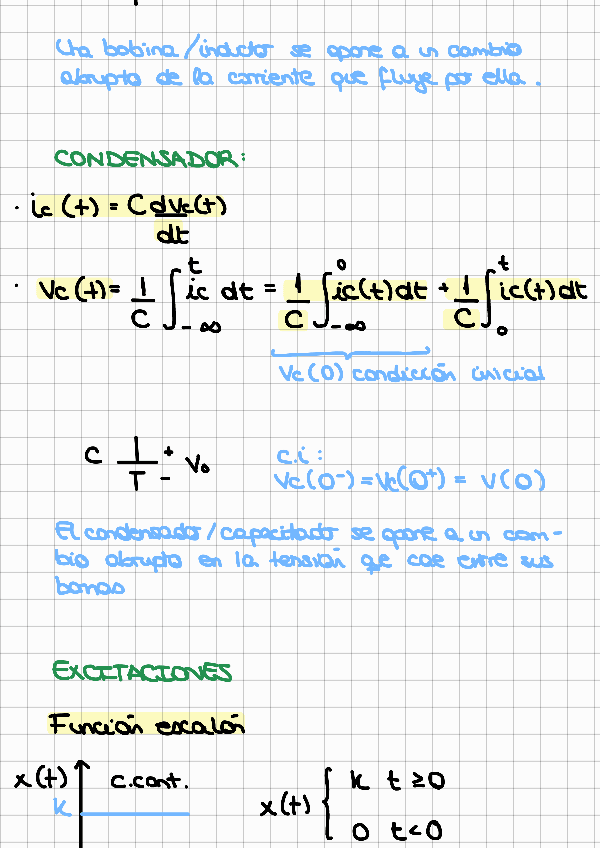 Una bobina/inductor se opone a un cambio
abrupto de la corriente que fluye por ella.
CONDENSADOR:
· ic(t) = C dVc(t)/dt
· Vc(t) = 1/C ∫_{-∞}^{t} ic dt = 1/C ∫_{-∞}^{0} ic(t)dt + 1/C ∫_{0}^{t} ic(t)dt
Vc(0) condición inicial
C + - V₀
c.i:
Vc(0⁻) = Vc(0⁺) = V(0)
El condensador/capacitador se opone a un cam-
bio abrupto en la tensión que cae entre sus
bornas
EXCITACIONES
Función escalón
x(t) c.cont.
k
x(t) { k t ≥ 0
0 t < 0